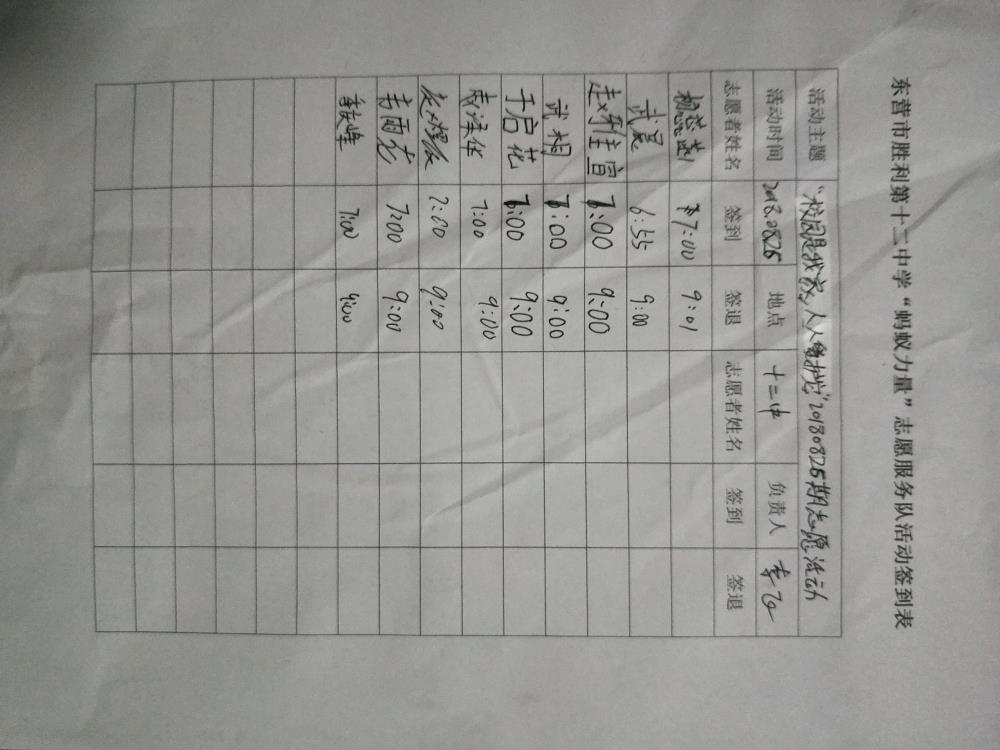 东营市胜利第十二中学“蚂蚁力量”志愿服务队活动签到表
活动主题 “校园是我家,人人爱护它”20180825期志愿活动
活动时间 2018.0825 地点 十二中 负责人
志愿者姓名 签到 签退 志愿者姓名 签到 签退
7:00 9:01
武昊 6:55 9:00
7:00 9:00
武桐 7:00 9:00
于启花 7:00 9:00
7:00 9:00
7:00 9:00
7:00 9:00
7:00 9:00